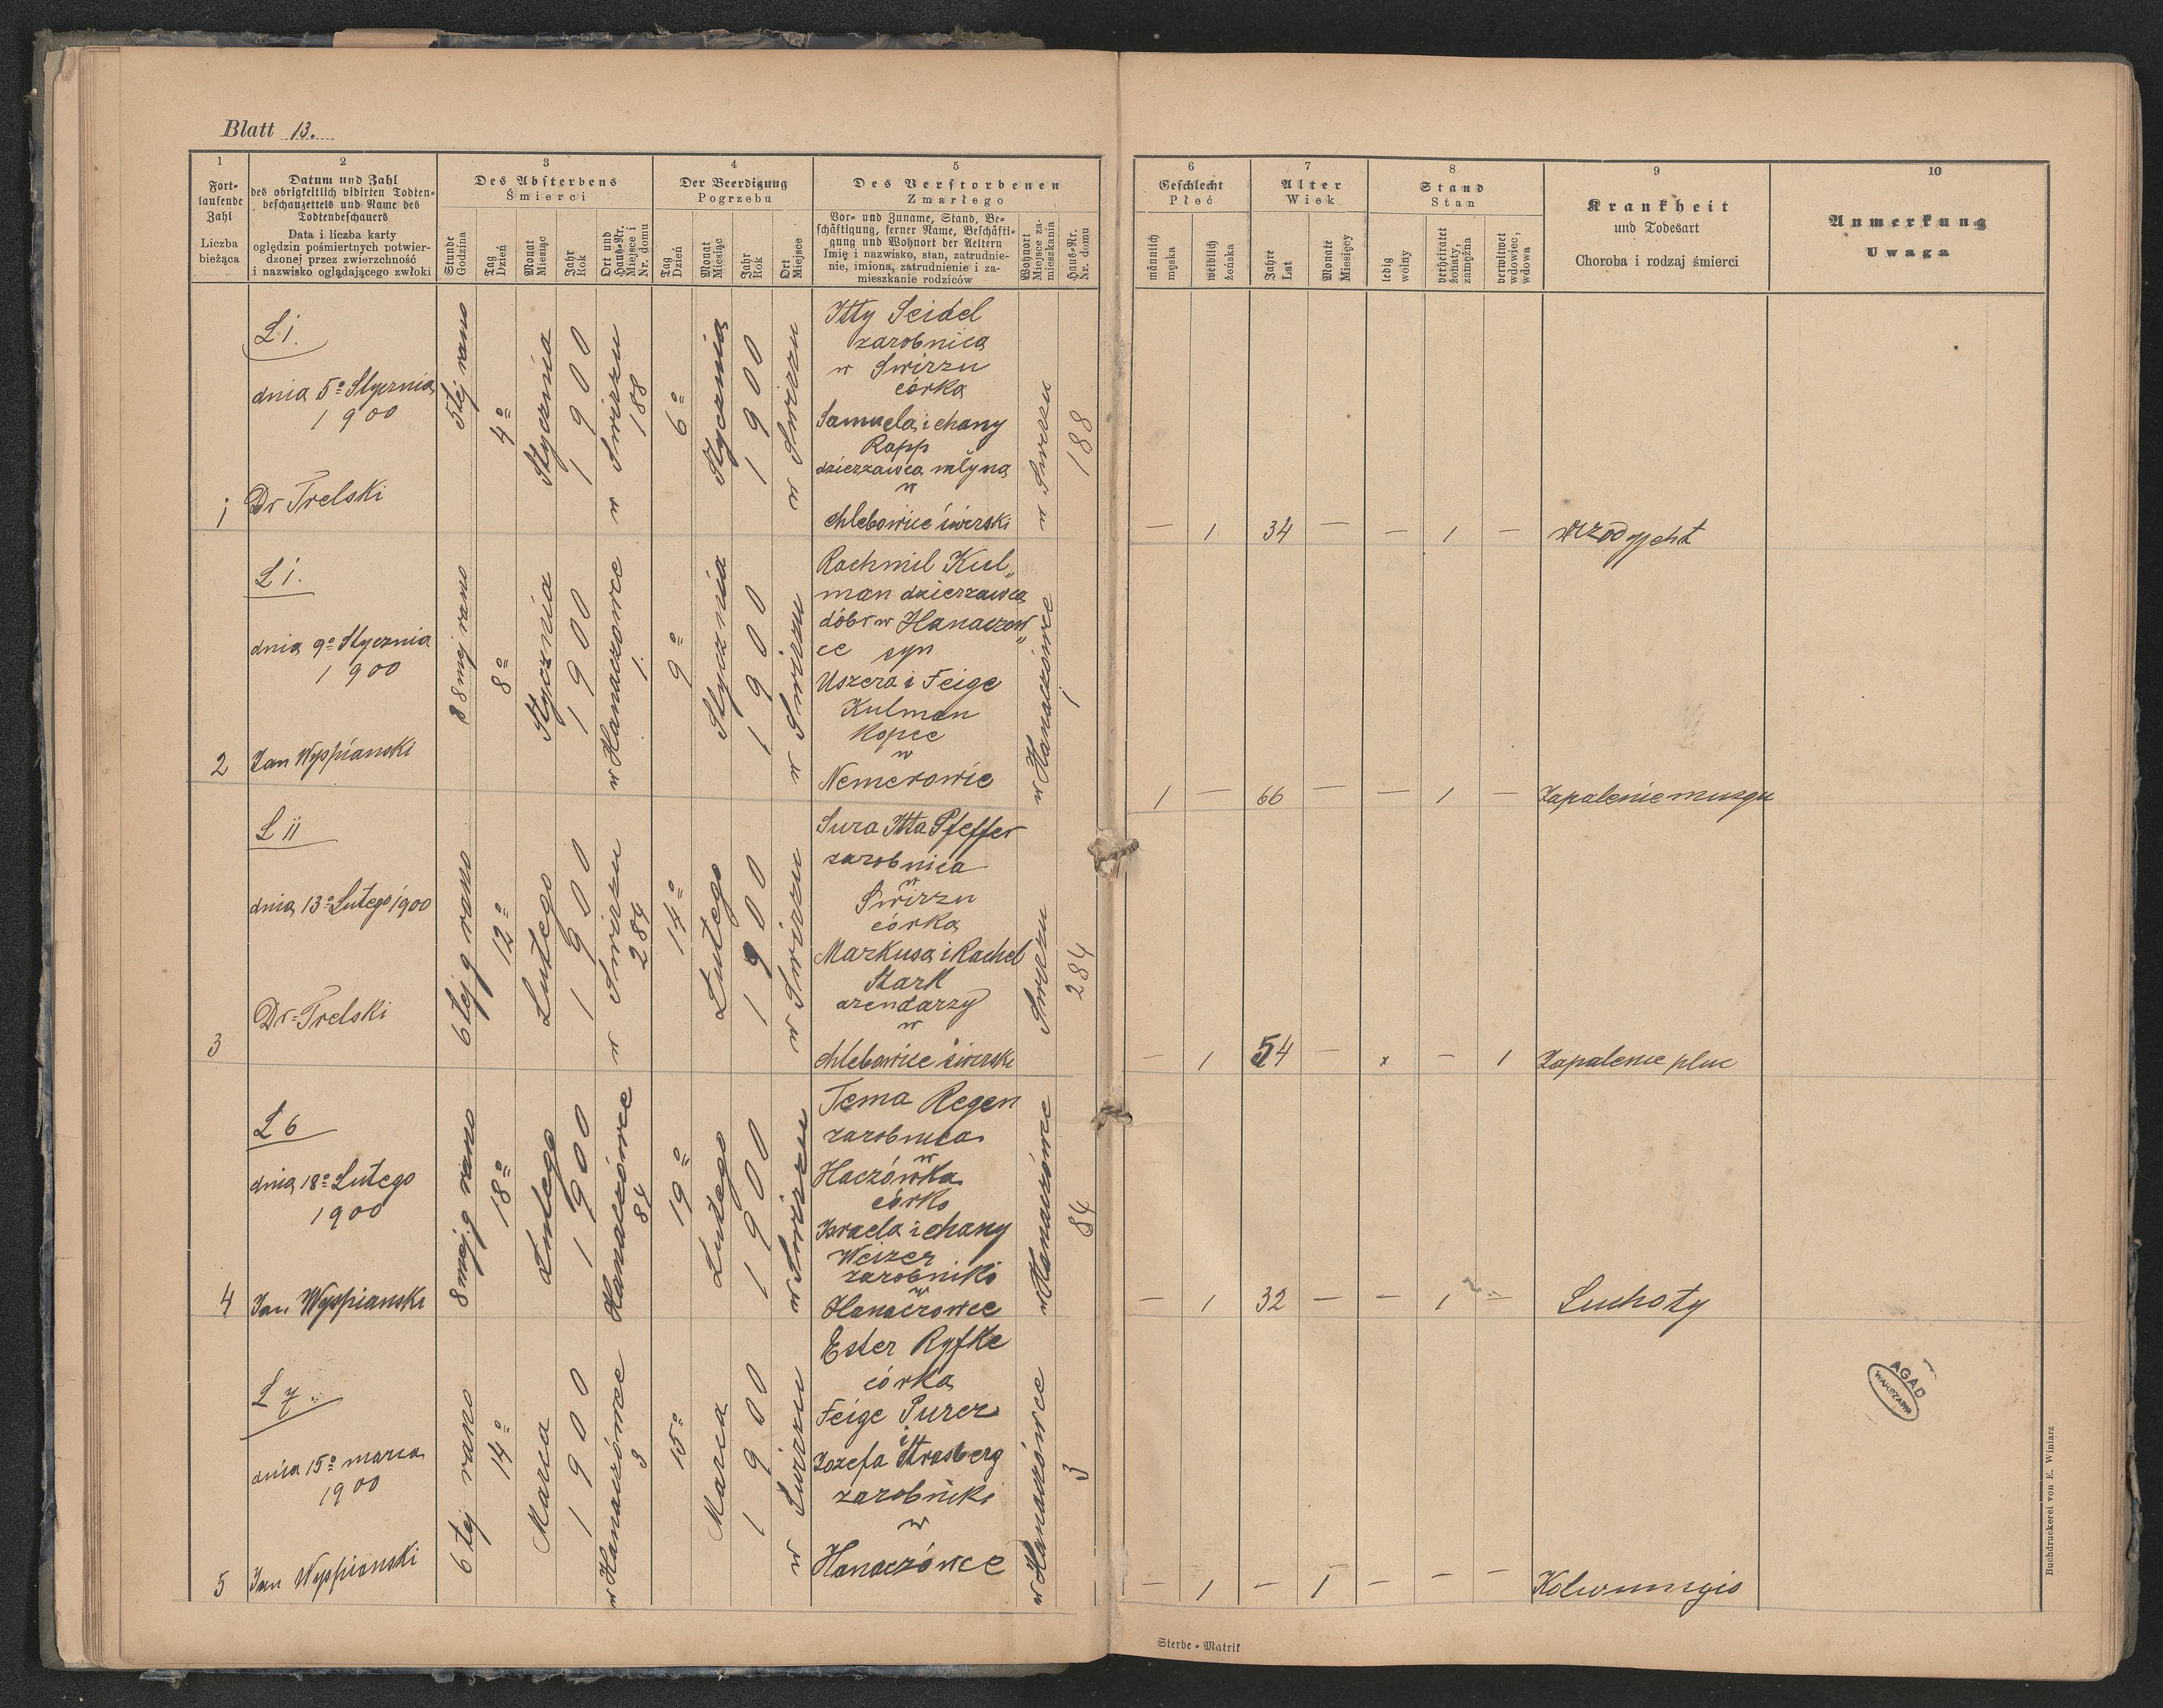 Blatt 13.
1
Fort-
laufende
Zahl
Liczba
bieżąca
2
Datum und Zahl
des obrigkeitlich vidirten Todten-
beschauzettels und Name des
Todtenbeschauers
Data i liczba karty
oględzin pośmiertnych potwier-
dzonej przez zwierzchność
i nazwisko oglądającego zwłoki
3
Des Absterbens
Śmierci
Stunde
Godzina
Tag
Dzień
Monat
Miesiąc
Jahr
Rok
Ort und
Haus-Nr.
Miejsce i
Nr. domu
4
Der Beerdigung
Pogrzebu
Tag
Dzień
Monat
Miesiąc
Jahr
Rok
Ort
Miejsce
5
Des Verstorbenen
Zmarłego
Vor- und Zuname, Stand, Be-
schäftigung, ferner Name, Beschäfti-
gung und Wohnort der Aeltern
Imię i nazwisko, stan, zatrudnie-
nie, imiona, zatrudnienie i za-
mieszkanie rodziców
Wohnort
Miejsce za-
mieszkania
Haus-Nr.
Nr. domu
6
Geschlecht
Płeć
männlich
męska
weiblich
żeńska
7
Alter
Wiek
Jahre
Lat
Monate
Miesięcy
8
Stand
Stan
ledig
wolny
verheiratet
żonaty,
zamężna
verwitwet
wdowiec,
wdowa
9
Krankheit
und Todesart
Choroba i rodzaj śmierci
10
Anmerkung
Uwaga
1
L i.
dnia 5º Stycznia
1900
Dr Trelski
5tej rano
4º
Stycznia
1900
w Swirzu
188
6º
Stycznia
1900
w Swirzu
Itty Seidel
zarobnica
w Swirzu
córka
Samuela i chany
Rapp
dzierzawca młyna
w
chlebowice świrski
w Swirzu
188
— 1 34 — — 1 —
2
L i.
dnia 9º Stycznia
1900
Jan Wyspianski
8mej rano
8º
Stycznia
1900
w Hanaczowce
1.
9º
Stycznia
1900
w Swirzu
Rachmil Kul„
man dzierzawca
dóbr w Hanaczow„
ce syn
Uszera i Feige
Kulman
Kopce
w
Nemerowie
w Hanaczówce
1
1 — 66 — — 1 —
Zapalenie muzgu
3
L ii
dnia 13º Lutego 1900
Dr Trelski
6tej g rano
12º
Lutego
1900
w Swirzu
284
14º
Lutego
1900
w Swirzu
Sura Itta Pfeffer
zarobnica
w
Swirzu
córka
Markusa i Rachel
Stark
arendarzy
w
chlebowice świrski
Swirzu
284
— 1 54 — x — 1
Zapalenie pluc
4
L 6
dnia 18º Lutego
1900
Jan Wyspianski
8mej g rano
18º
Lutego
1900
Hanaczówce
84
19º
Lutego
1900
w Swirzu
Tema Regen
zarobnica
w
Haczówka
córka
Israela i chany
Weizer
zarobniki
w
Hanaczowce
w Hanaczówce
84
— 1 32 — — 1 —
Suchoty
5
L 7
dnia 15º marca
1900
Jan Wyspianski
6tej rano
14º
Marca
1900
w Hanaczówce
3
15º
Marca
1900
w Swirzu
Ester Ryfke
córka
Feige Purer
i
Jozefa Strasberg
zarobniki
w
Hanaczówce
w Hanaczówce
3
— 1 — 1 — — —
AGAD
WARSZAWA
Buchdruckerei von E. Winiarz
Sterbe-Matrik